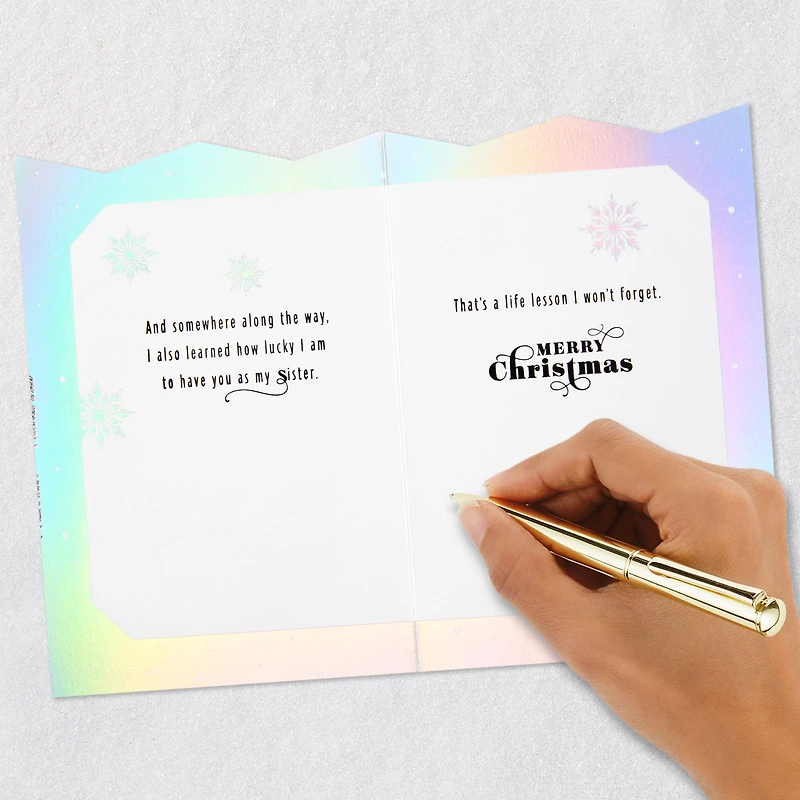 And somewhere along the way,
I also learned how lucky I am
to have you as my Sister.
That's a life lesson I won't forget.
MERRY
Christmas